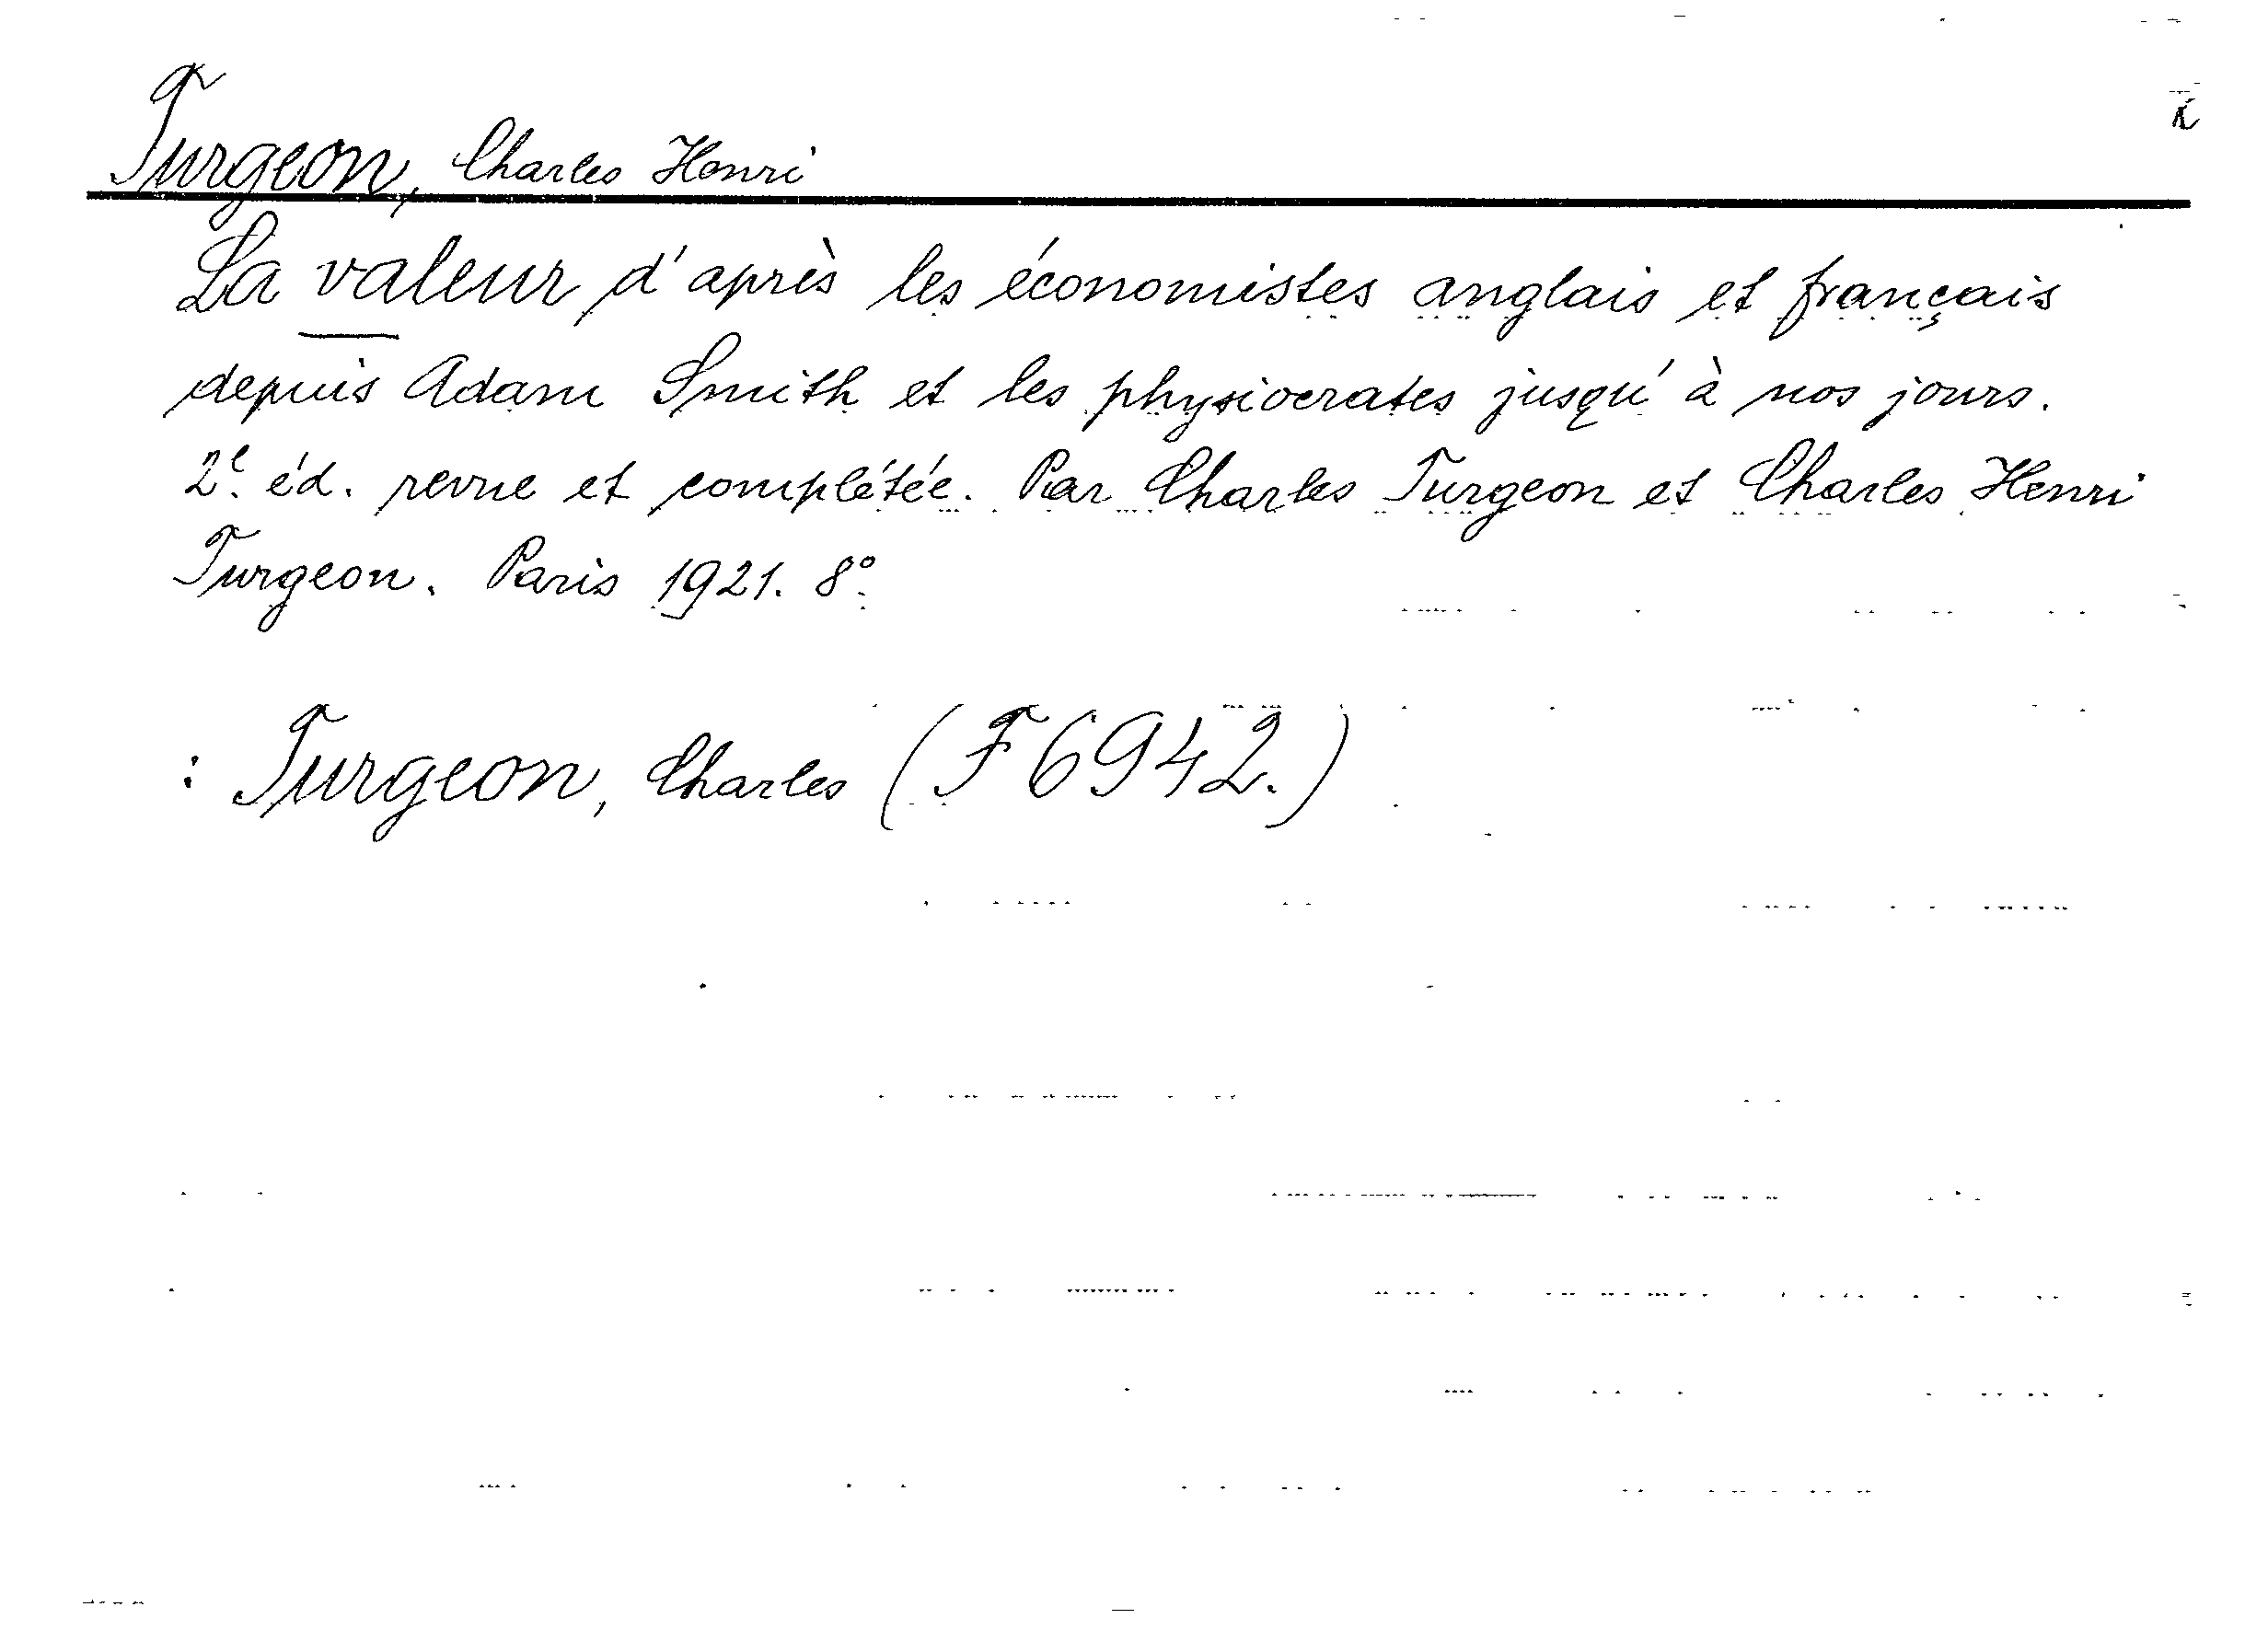 Turgeon, Charles Henri
La valeur d'après les économistes anglais et français
depuis Adam Smith et les physiocrates jusqu'à nos jours.
2e. éd. revue et complétée. Par Charles Turgeon et Charles Henri
Turgeon. Paris 1921. 8°.
: Turgeon, Charles (F 6942.)